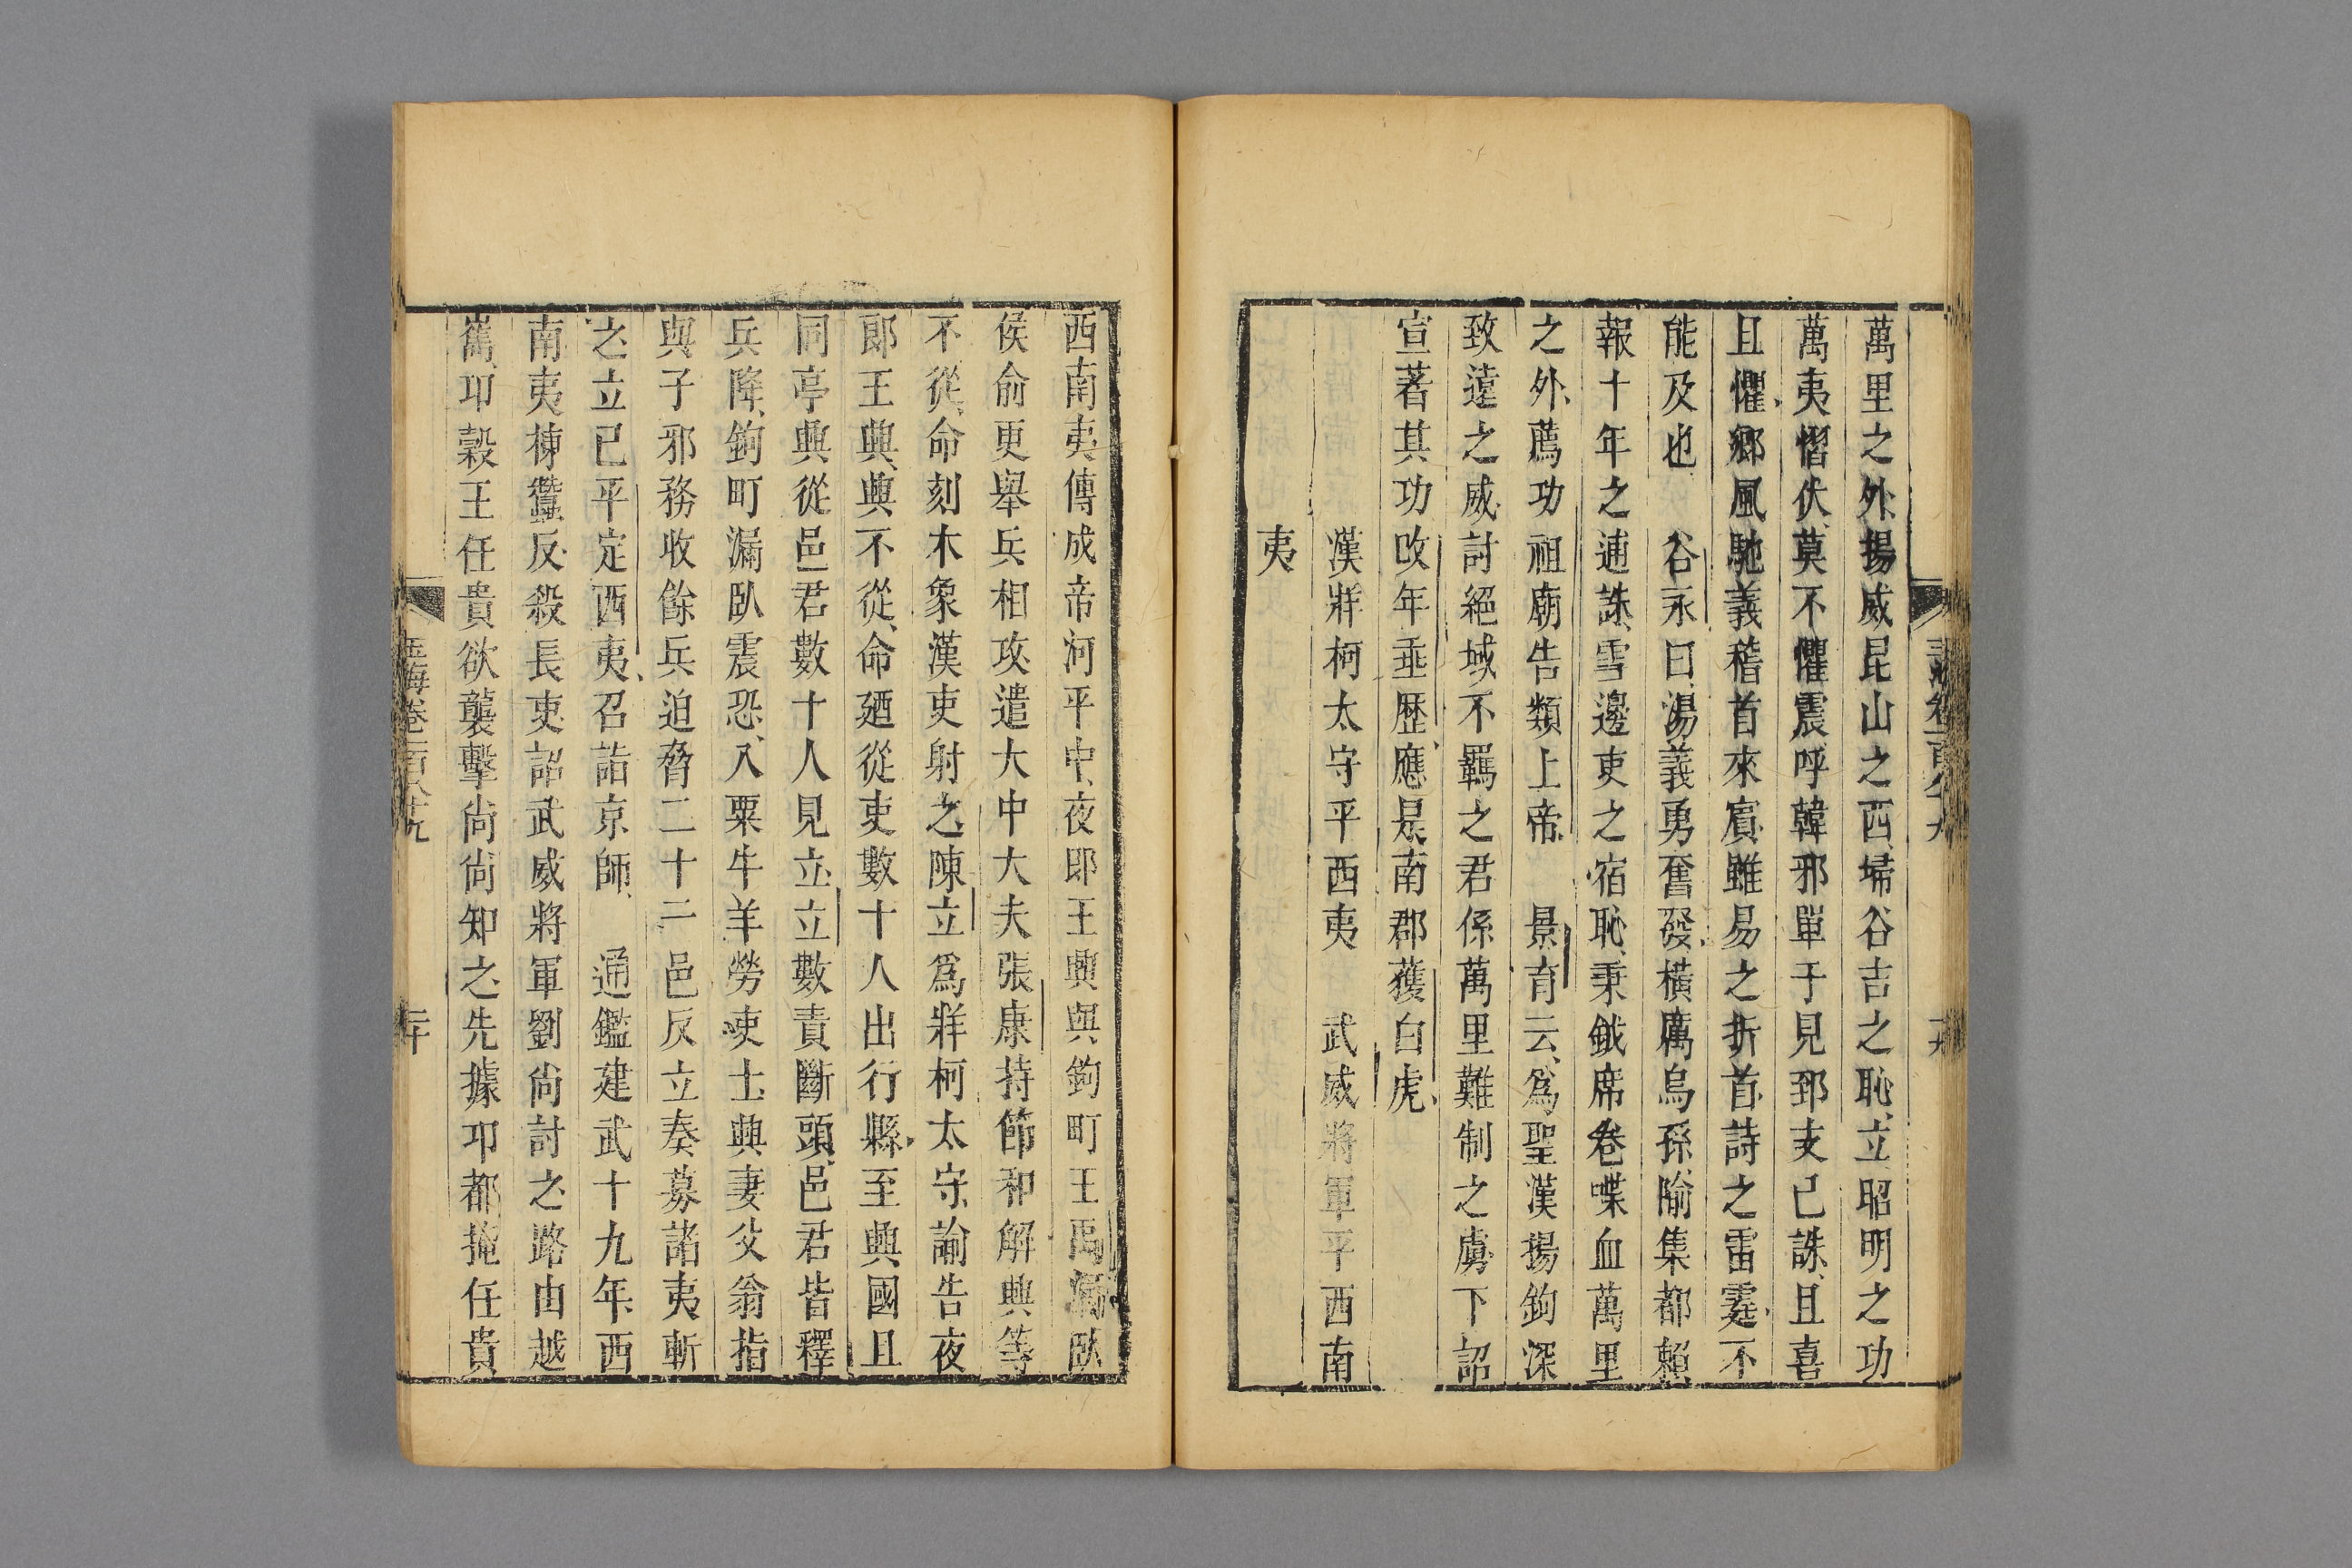 萬里之外揚威昆山之西埽谷吉之恥立昭明之功
萬夷慴伏莫不懼震呼韓邪單于見郅支已誅且喜
且懼鄉風馳義稽首來賔雖易之折首詩之雷霆不
能及也　谷永曰湯義勇奮發橫厲烏孫隃集都賴
報十年之逋誅雪邊吏之宿恥秉鉞席卷喋血萬里
之外薦功祖廟告類上帝　景育云爲聖漢揚鉤深
致遠之威討絕域不羈之君係萬里難制之虜下詔
宣著其功改年埀歴應是南郡獲白虎
漢牂柯太守平西夷　武威將軍平西南
夷
西南夷傳成帝河平中夜郎王興與鉤町王禹漏臥
侯俞更舉兵相攻遣大中大夫張康持節和解興等
不從命刻木象漢吏射之陳立爲牂柯太守諭告夜
郎王興興不從命廼從吏數十人出行縣至興國且
同亭興從邑君數十人見立立數責斷頭邑君皆釋
兵降鉤町漏臥震恐入粟牛羊勞吏士興妻父翁指
與子邪務收餘兵迫脅二十二邑反立奏募諸夷斬
之立已平定西夷召詣京師　通鑑建武十九年西
南夷棟蠶反殺長吏詔武威將軍劉尚討之路由越
嶲卭穀王任貴欲襲擊尚尚知之先據卭都掩任貴
玉海卷一百八十九
二十